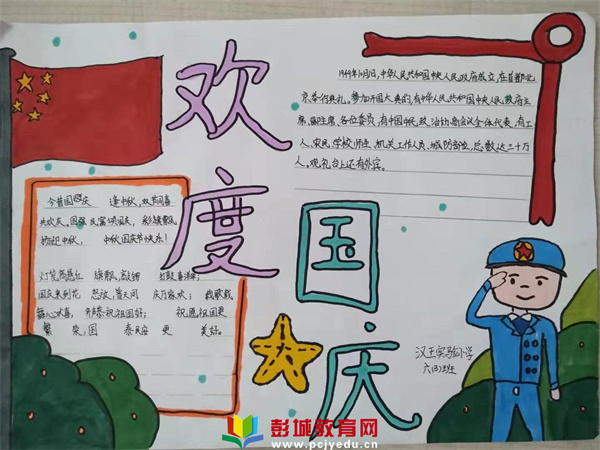 欢度
国庆
1949年10月1日,中华人民共和国中央人民政府成立,在首都北
京举行典礼。参加开国大典的,有中华人民共和国中央人民政府主
席、副主席、各位委员,有中国人民政治协商会议全体代表,有工
人、农民、学校师生、机关工作人员、城防部队,总数达三十万
人。观礼台上还有外宾。
今昔国庆 逢中秋,双节同喜
共欢庆。国强民富颂国庆,彩
迎中秋, 中秋国庆节快乐!
灯笼 红 旗飘
国庆来到花 怒放,普天同 庆万家欢;
心欢喜 恭祝祖国好; 祝愿祖国更
繁荣,国 泰民安 更 美好。
汉王实验小学
六(3)班
彭城教育网
www.pcjyedu.cn